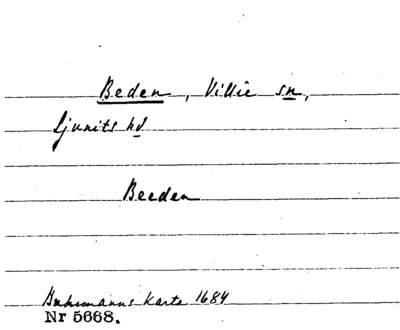 Beden, Villie sn,
Ljunits hd
Beeden
Buhrmanns Karta 1684
Nr 5668.